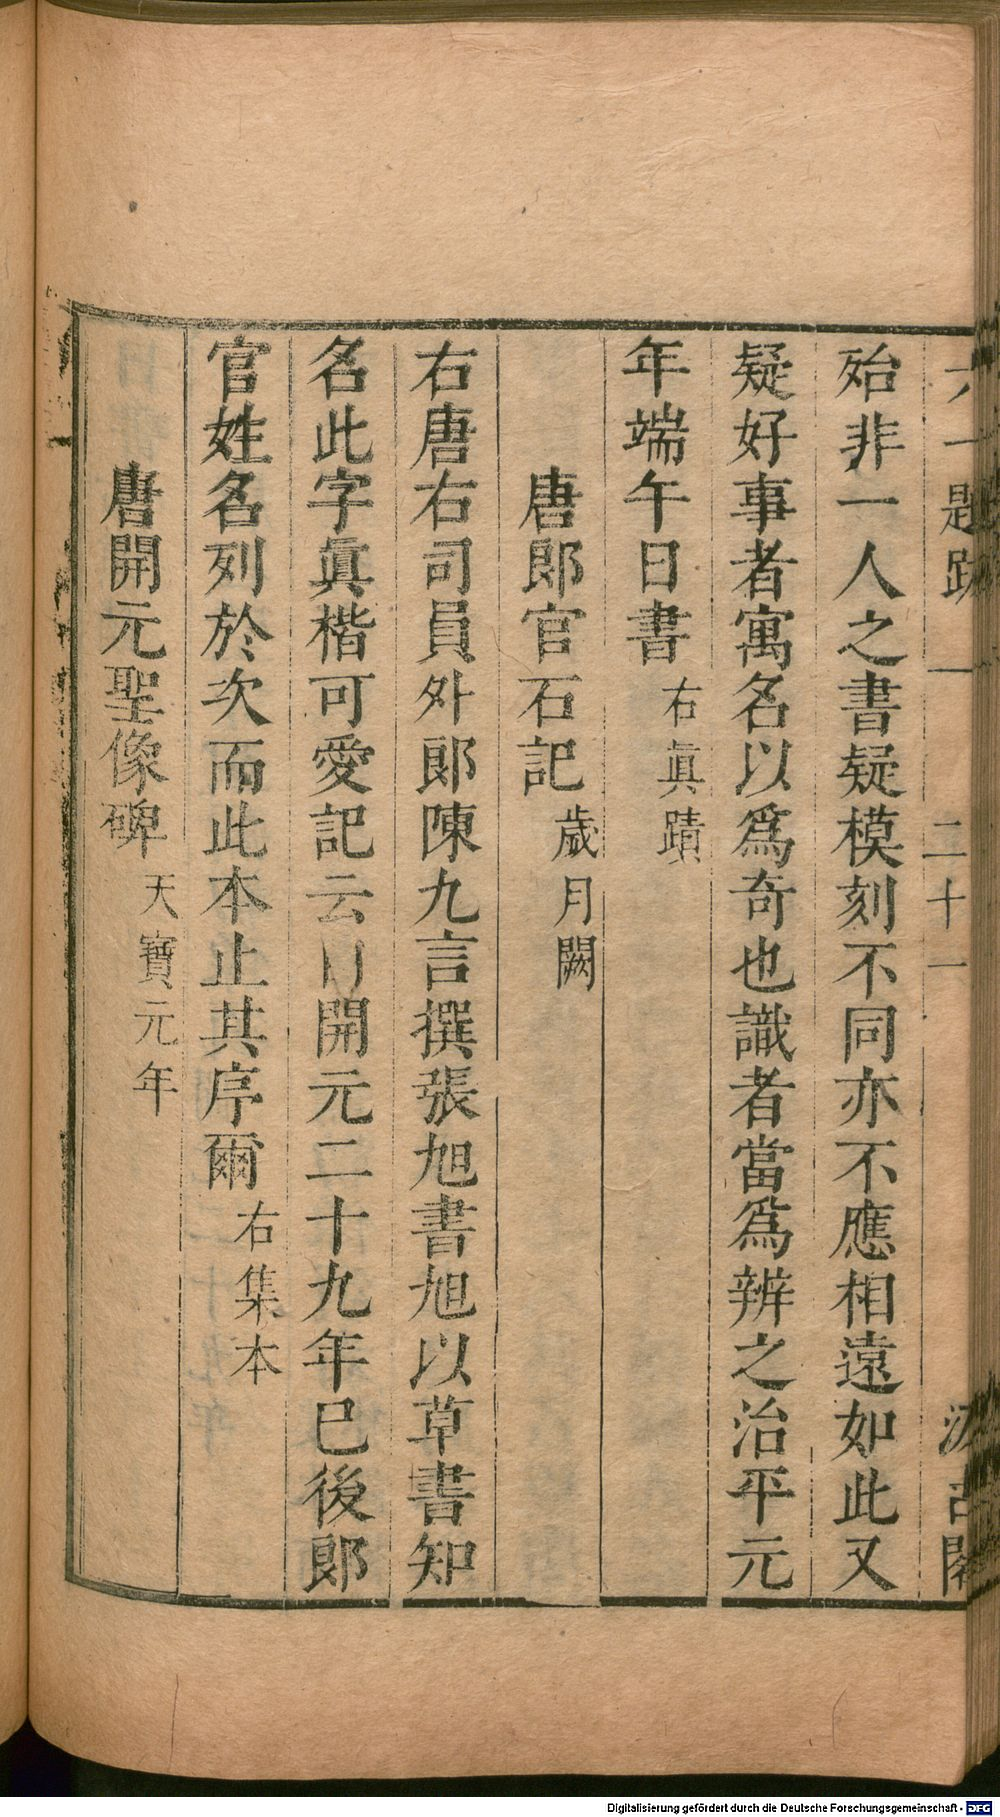 六一題跋 一 二十一 汲古閣
殆非一人之書疑模刻不同亦不應相遠如此又
疑好事者寓名以爲奇也識者當爲辨之治平元
年端午日書右眞蹟
唐郞官石記歲月闕
右唐右司員外郞陳九言撰張旭書旭以草書知
名此字眞楷可愛記云 開元二十九年已後郞
官姓名列於次而此本止其序爾右集本
唐開元聖像碑天寶元年
Digitalisierung gefördert durch die Deutsche Forschungsgemeinschaft - DFG